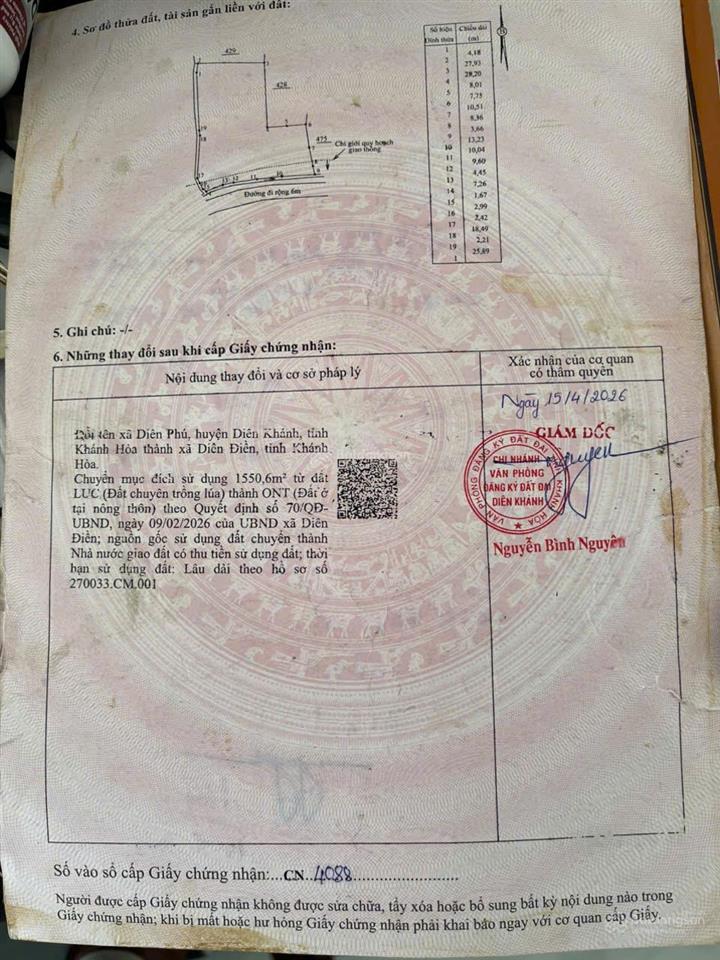 4. Sơ đồ thửa đất, tài sản gắn liền với đất:
429
428
475
Chỉ giới quy hoạch
giao thông
Đường đi rộng 6m
Số hiệu Đỉnh thửa
Chiều dài (m)
1
4,18
2
27,93
3
28,20
4
8,01
5
7,75
6
10,51
7
8,36
8
3,66
9
13,23
10
10,04
11
9,60
12
4,45
13
7,26
14
1,67
15
2,99
16
2,42
17
18,49
18
2,21
19
25,89
1
5. Ghi chú: -/-
6. Những thay đổi sau khi cấp Giấy chứng nhận:
Nội dung thay đổi và cơ sở pháp lý
Xác nhận của cơ quan
có thẩm quyền
Đổi tên xã Diên Phú, huyện Diên Khánh, tỉnh
Khánh Hòa thành xã Diên Điền, tỉnh Khánh
Hòa.
Chuyển mục đích sử dụng 1550,6m² từ đất
LUC (Đất chuyên trồng lúa) thành ONT (Đất ở
tại nông thôn) theo Quyết định số 70/QĐ-
UBND, ngày 09/02/2026 của UBND xã Diên
Điền; nguồn gốc sử dụng đất chuyển thành
Nhà nước giao đất có thu tiền sử dụng đất; thời
hạn sử dụng đất: Lâu dài theo hồ sơ số
270033.CM.001
Ngày 15/4/2026
GIÁM ĐỐC
VĂN PHÒNG ĐĂNG KÝ ĐẤT ĐAI TỈNH KHÁNH HÒA
CHI NHÁNH
VĂN PHÒNG
ĐĂNG KÝ ĐẤT ĐAI
DIÊN KHÁNH
Nguyễn Bình Nguyên
Số vào sổ cấp Giấy chứng nhận:...CN..4088........................
Người được cấp Giấy chứng nhận không được sửa chữa, tẩy xóa hoặc bổ sung bất kỳ nội dung nào trong
Giấy chứng nhận; khi bị mất hoặc hư hỏng Giấy chứng nhận phải khai báo ngay với cơ quan cấp Giấy.